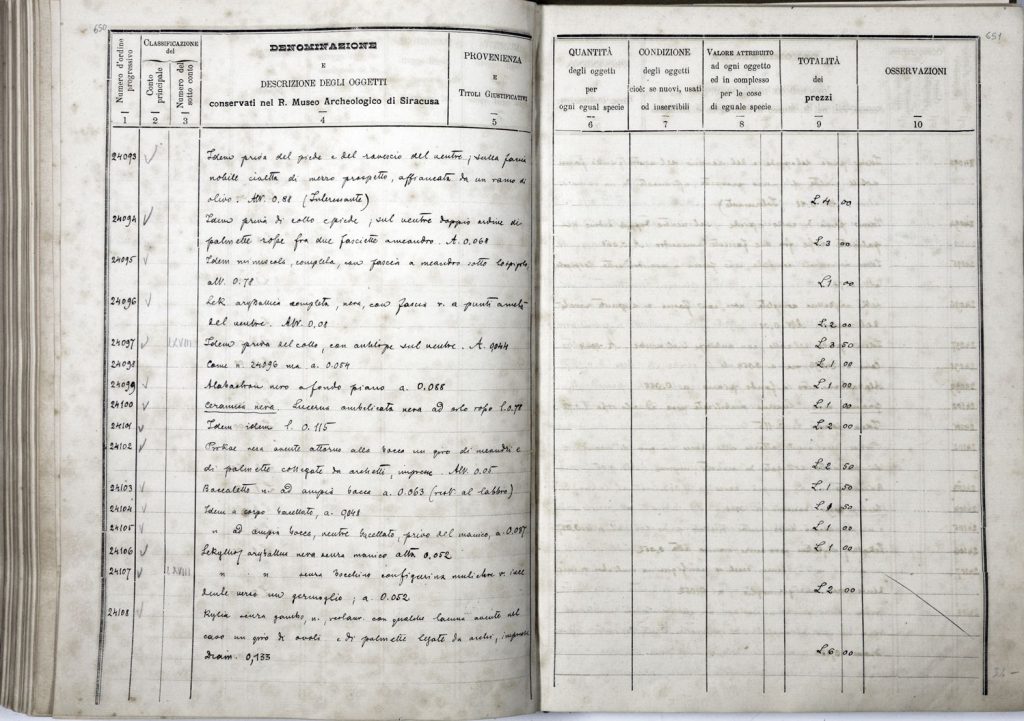 650
Numero d'ordine progressivo
Classificazione del
Conto principale
Numero del sotto conto
DENOMINAZIONE
E
DESCRIZIONE DEGLI OGGETTI
conservati nel R. Museo Archeologico di Siracusa
PROVENIENZA
E
Titoli Giustificativi
1 2 3 4 5
24093 Idem priva del piede e del rovescio del ventre; sulla faccia
nobile civetta di mezzo prospetto, affiancata da un ramo di
olivo. Alt. 0.88 (Interessante)
24094 Idem priva di collo e piede; sul ventre doppio ordine di
palmette rosse fra due fasciette a meandro. A. 0.068
24095 Idem minuscola, completa, con fascia a meandro sotto la spalla,
alt. 0.78
24096 Lek. aryballica completa, nera, con fascia r. a punti a metà
del ventre. Alt. 0.08
24097 LXVIII Idem priva del collo, con antelope sul ventre. A. 0,044
24098 Come n. 24096 ma a. 0.054
24099 Alabastron nero a fondo piano a. 0.088
24100 Ceramica nera. Lucerna ombelicata nera ad orlo roso l. 0.78
24101 Idem idem l. 0.115
24102 nera avente attorno alla bocca un giro di meandri e
di palmette collegate da archetti, impresse. Alt. 0.05
24103 Boccaletto n. ad ampia bocca a. 0.063 (rest. al labbro)
24104 Idem a corpo baccellato, a. 0,048
24105 " ad ampia bocca, ventre baccellato, privo del manico, a. 0.087
24106 Lekythos aryballica nera senza manico alta 0.052
24107 LXVIII " " senza bocchino con figurina muliebre r.
verso un germoglio; a. 0.052
24108 Kylix senza gambo, n., restaur. con qualche lacuna avente nel
cavo un giro di ovoli e di palmette legate da archi, impresse
Diam. 0,133
651
QUANTITÀ
degli oggetti
per
ogni egual specie
CONDIZIONE
degli oggetti
cioè: se nuovi, usati
od inservibili
Valore attribuito
ad ogni oggetto
ed in complesso
per le cose
di eguale specie
TOTALITÀ
dei
prezzi
OSSERVAZIONI
6 7 8 9 10
L. 4 00
L. 3 00
L. 1 00
L. 2 00
L. 3 50
L. 1 00
L. 1 00
L. 1 00
L. 2 00
L. 2 50
L. 1 50
L. 1 50
L. 1 00
L. 1 00
L. 2 00
L. 6 00